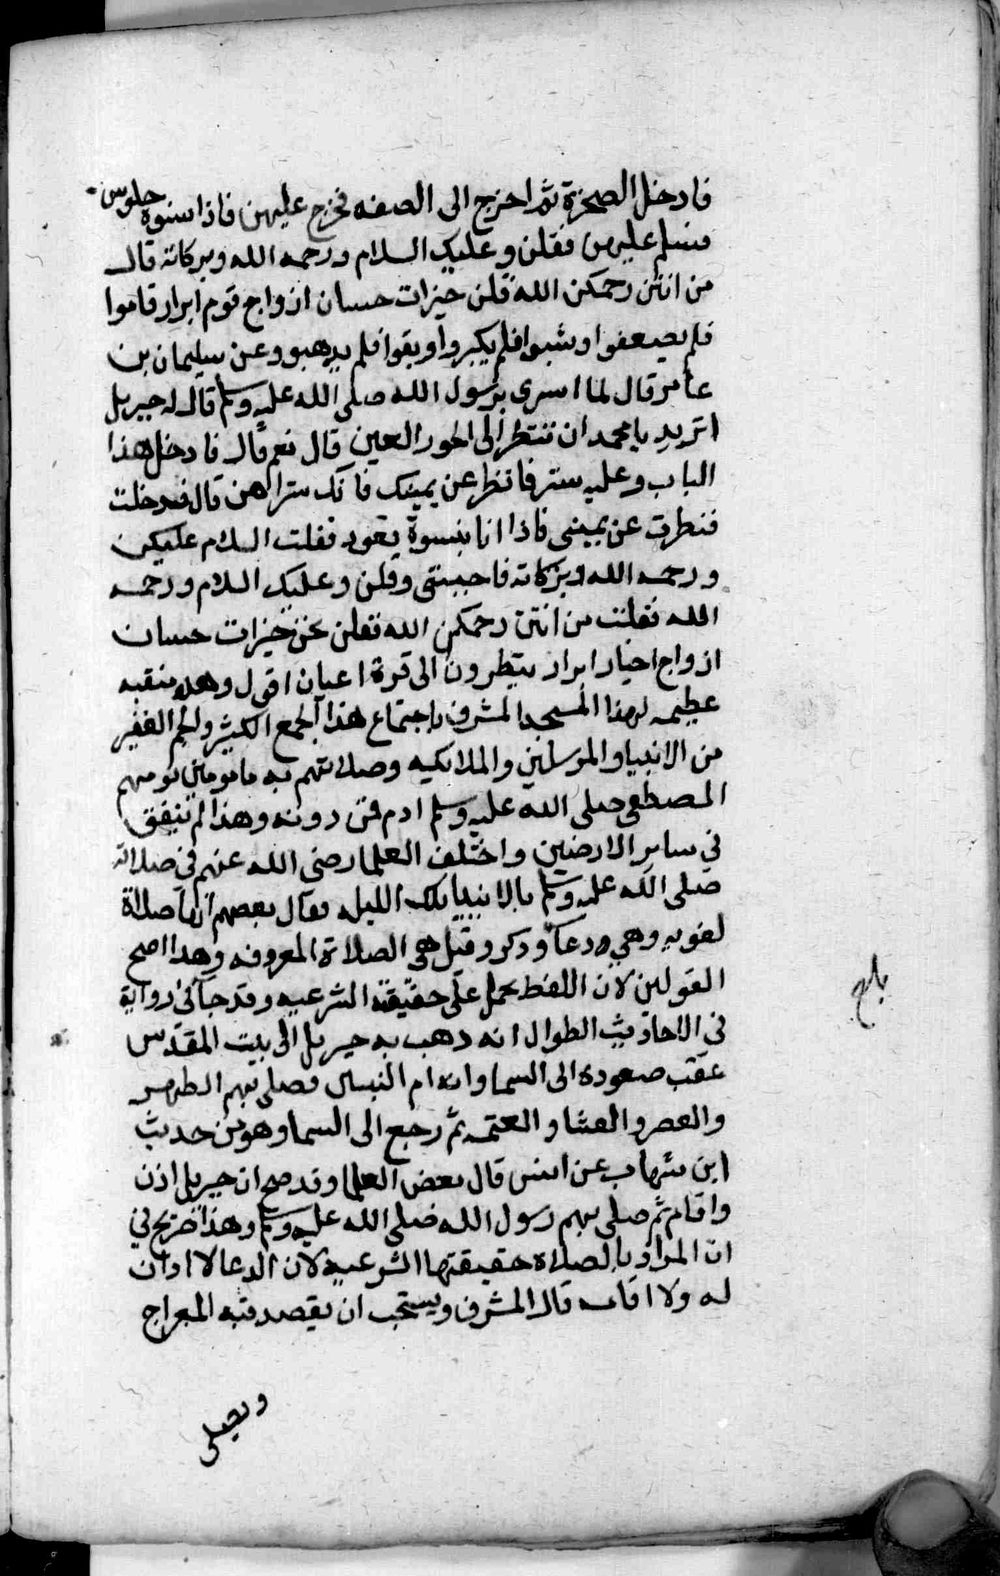 فادخل الصخرة ثم اخرج الى الصفه فخرج عليهن فاذا نسوة جلوس
فسلم عليهن فقلن وعليك السلام ورحمه الله وبركاته قال
من انتن رحمكن الله قلن خيرات حسان ازواج قوم ابرار قاموا
فلم يضعفوا وشبوا فلم يكبروا وبقوا فلم يذهبوا وعن سليمان بن
عامر قال لما اسرى برسول الله صلى الله عليه وسلم قال له جبريل
اتريد يا محمد ان تنظر الى الحور العين قال نعم قال فادخل هذا
الباب وعليه ستر فانظر عن يمينك فانك ستراهن قال فدخلت
فنظرت عن يميني فاذا انا بنسوة قعود فقلت السلام عليكن
ورحمه الله وبركاته فاجبنني وقلن وعليك السلام ورحمه
الله فقلت من انتن رحمكن الله فقلن نحن خيرات حسان
ازواج اخيار ابرار ينظرون الى قرة اعيان اقول وهذه منقبه
عظيمه لهذا المسجد المشرف باجتماع هذا الجمع الكثير والجم الغفير
من الانبيا والمرسلين والملائكه وصلاتهم به مامومين يومهم
المصطفى صلى الله عليه وسلم ادم فمن دونه وهذا لم يتفق
في ساير الارضين واختلف العلما رضى الله عنهم في صلاته
صلى الله عليه وسلم بالانبيا تلك الليله فقال بعضهم انها صلاة
لغويه وهي دعا وذكر وقيل هي الصلاة المعروفه وهذا اصح
القولين لان اللفظ يحمل على حقيقته الشرعيه وقد جا في رواية
في الاحاديث الطوال انه ذهب به جبريل الى بيت المقدس
عقب صعوده الى السما وانه ام النبيين فصلى بهم الظهر
والعصر والعشا والعتمه ثم رجع الى السما وهو من حديث
ابن شهاب عن انس قال بعض العلما وقد صح ان جبريل اذن
واقام ثم صلى بهم رسول الله صلى الله عليه وسلم وهذا صريح في
ان المراد بالصلاة حقيقتها الشرعيه لان الدعا لا اذان
له ولا اقامه قال المشرف ويستحب ان يقصد قبه المعراج
بلغ
ويصلي